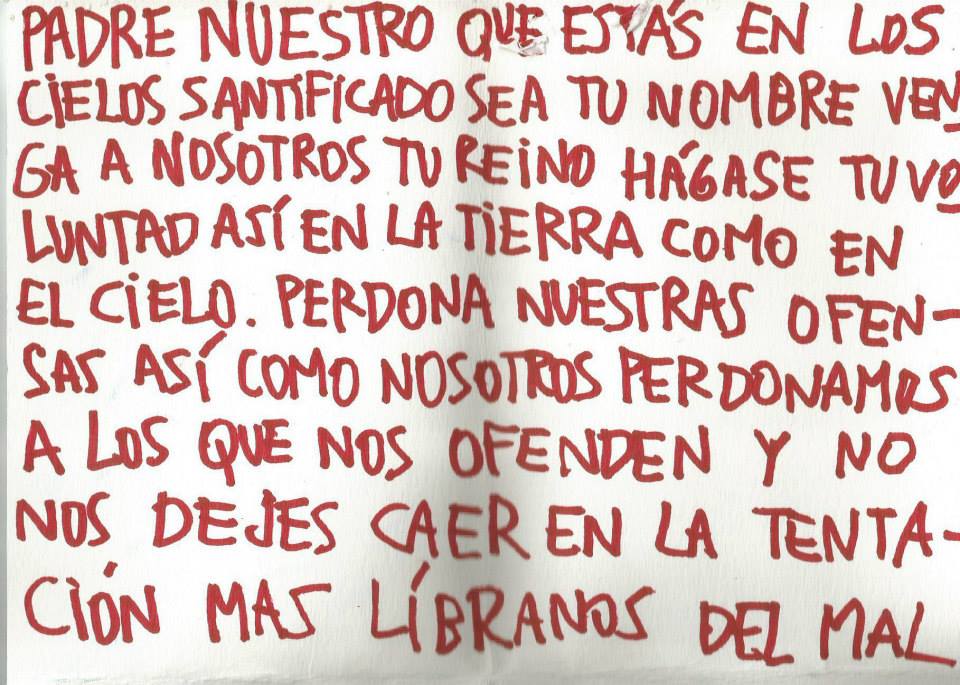 PADRE NUESTRO QUE ESTÁS EN LOS
CIELOS SANTIFICADO SEA TU NOMBRE VEN
GA A NOSOTROS TU REINO HÁGASE TU VO
LUNTAD ASÍ EN LA TIERRA COMO EN
EL CIELO. PERDONA NUESTRAS OFEN-
SAS ASÍ COMO NOSOTROS PERDONAMOS
A LOS QUE NOS OFENDEN Y NO
NOS DEJES CAER EN LA TENTA-
CIÓN MAS LÍBRANOS DEL MAL